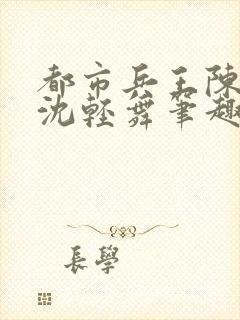 都市兵王陳
沈輕舞筆趣
長學